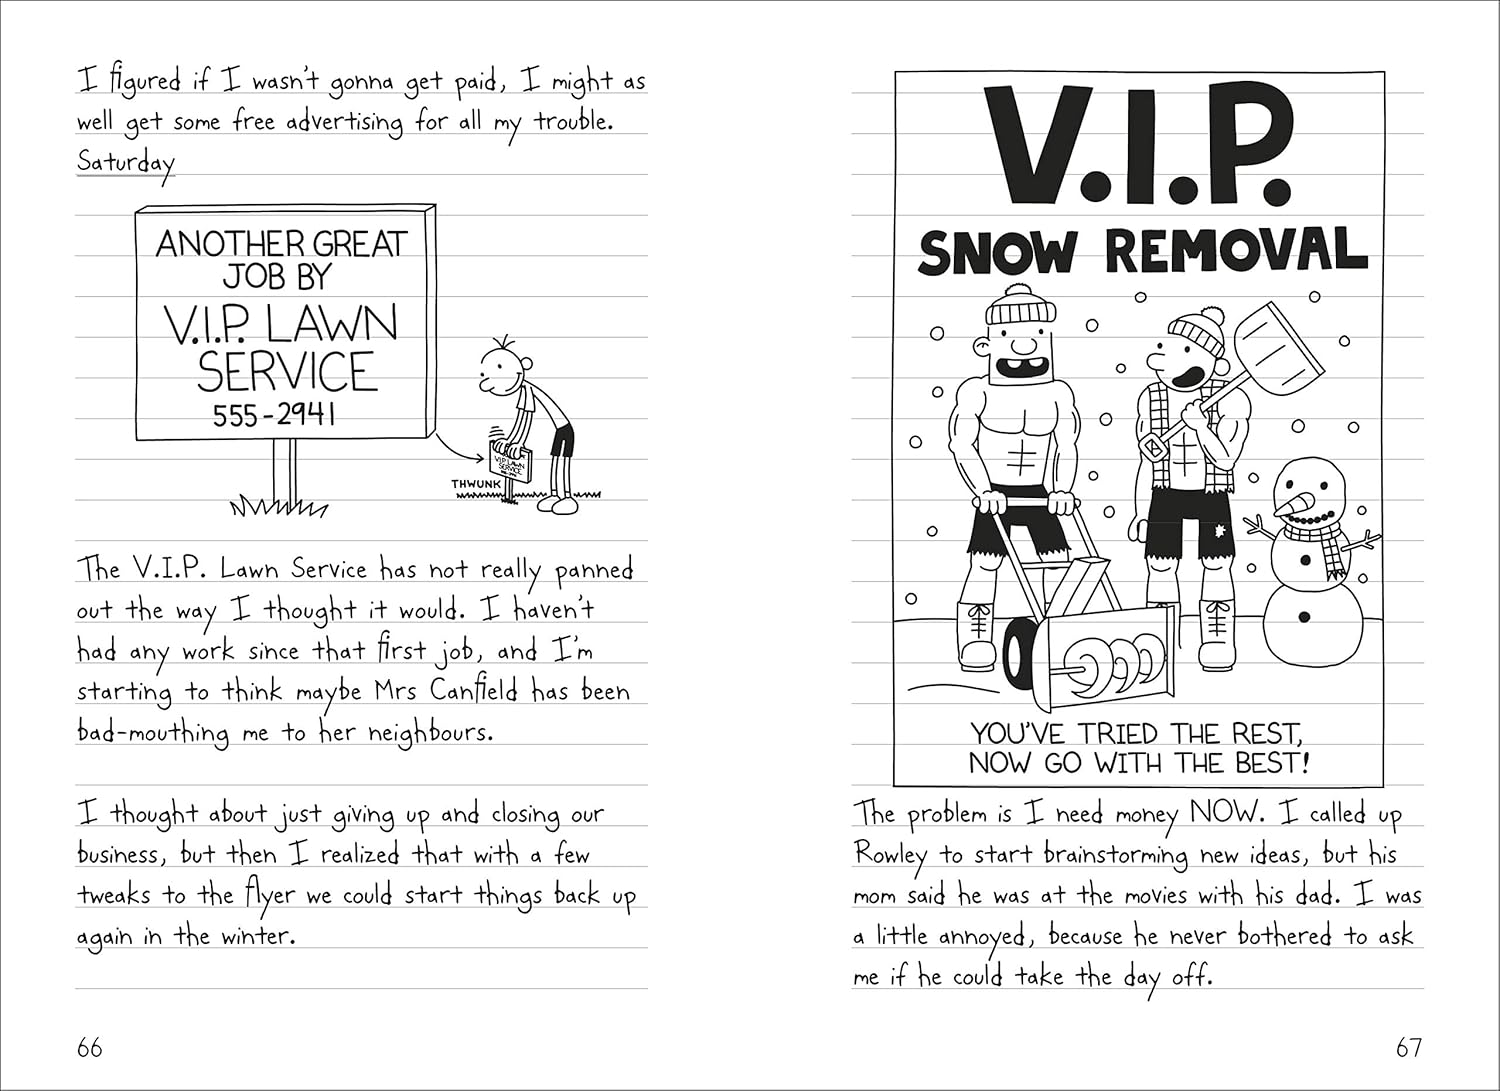 I figured if I wasn't gonna get paid, I might as
well get some free advertising for all my trouble.
Saturday
ANOTHER GREAT
JOB BY
V.I.P. LAWN
SERVICE
555-2941
V.I.P. LAWN
SERVICE
THWUNK
The V.I.P. Lawn Service has not really panned
out the way I thought it would. I haven't
had any work since that first job, and I'm
starting to think maybe Mrs Canfield has been
bad-mouthing me to her neighbours.
I thought about just giving up and closing our
business, but then I realized that with a few
tweaks to the flyer we could start things back up
again in the winter.
66
V.I.P.
SNOW REMOVAL
YOU'VE TRIED THE REST,
NOW GO WITH THE BEST!
The problem is I need money NOW. I called up
Rowley to start brainstorming new ideas, but his
mom said he was at the movies with his dad. I was
a little annoyed, because he never bothered to ask
me if he could take the day off.
67